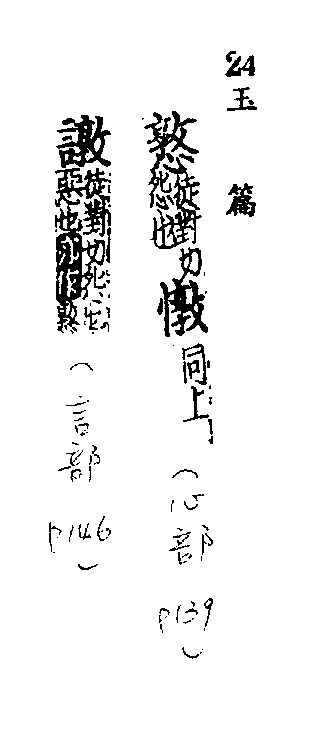 24玉篇
憝徒對切怨也憞同上(心部 P139)
譈徒對切怨也惡也亦作憝(言部 P146)